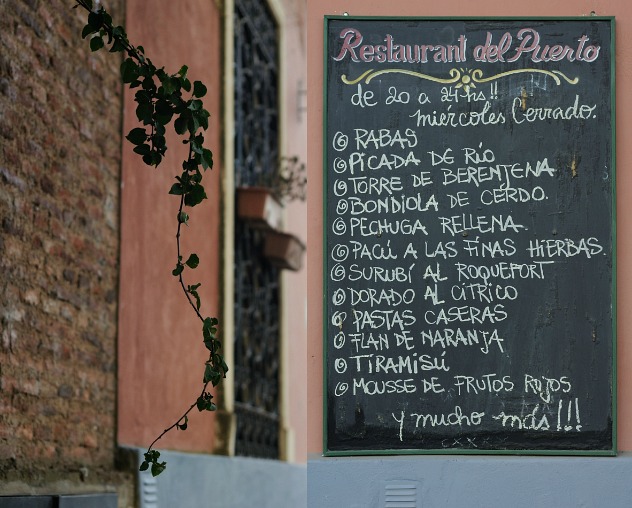 Restaurant del Puerto
de 20 a 24 hs!!
miércoles Cerrado.
RABAS
PICADA DE RÍO
TORRE DE BERENJENA
BONDIOLA DE CERDO.
PECHUGA RELLENA.
PACÚ A LAS FINAS HIERBAS.
SURUBÍ AL ROQUEFORT
DORADO AL CITRICO
PASTAS CASERAS
FLAN DE NARANJA
TIRAMISÚ
MOUSSE DE FRUTOS ROJOS
y mucho más!!!